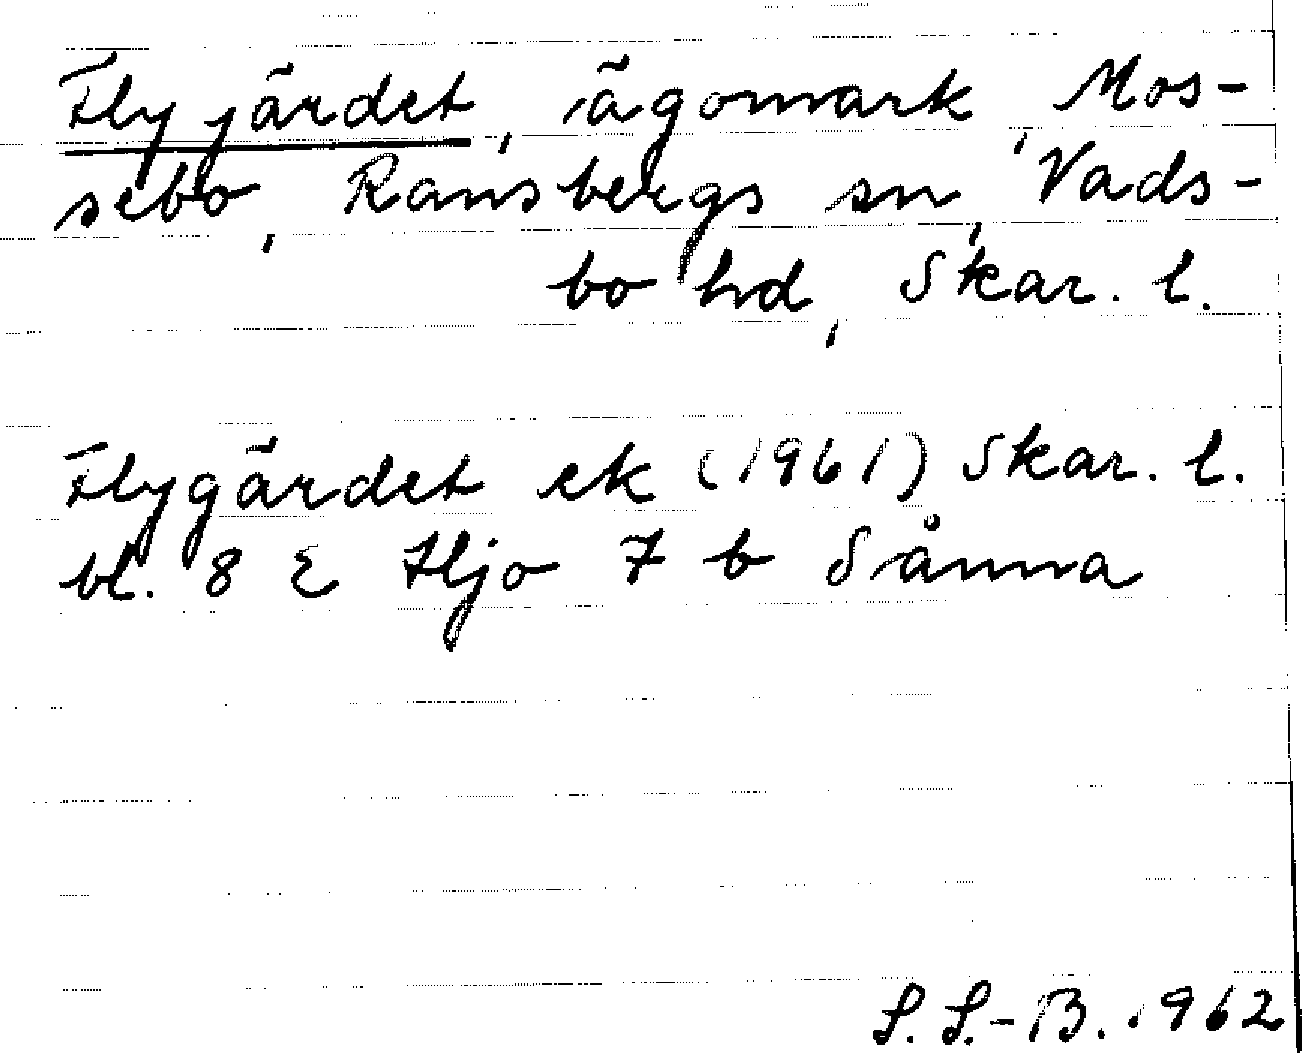 Flyjärdet, ägomark, Mos-
sebo, Ransbergs sn, Vads-
bo hd, Skar. l.
Flygärdet ek (1961) Skar. l.
bl. 8 E Hjo 7 b Sånna
S. S.-B. 1962